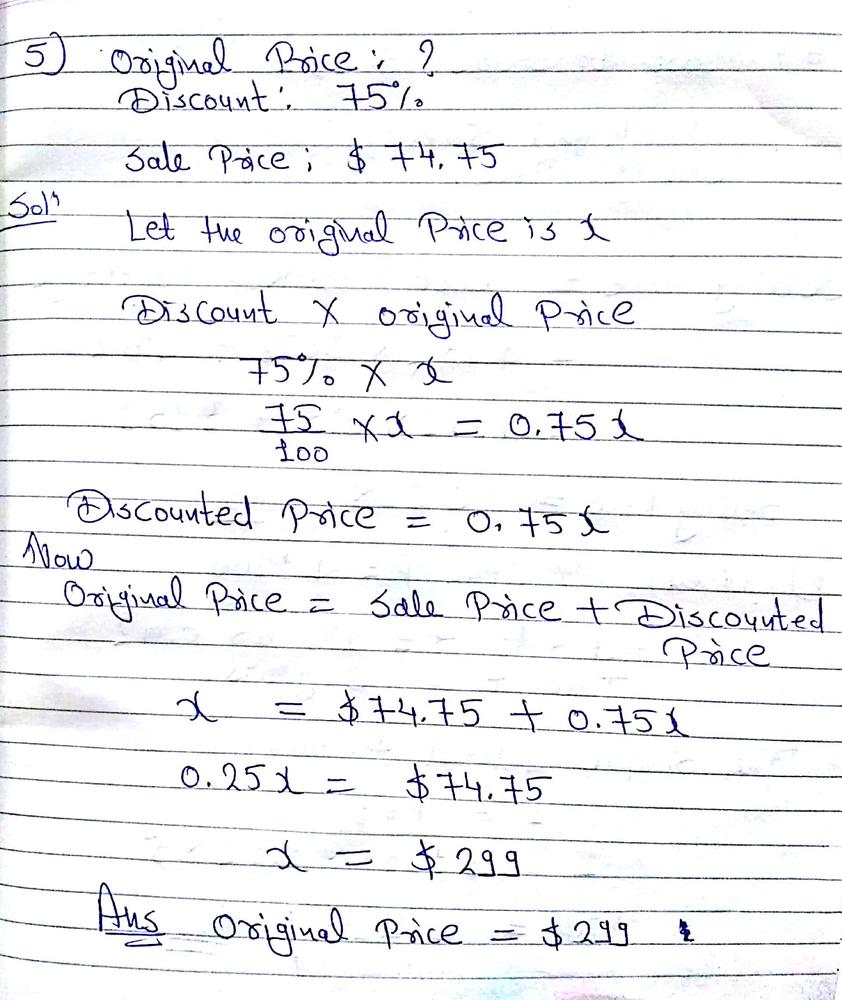 5) Original Price : ?
Discount : 75%
Sale Price ; $ 74.75
Solⁿ
Let the original Price is x
Discount X original Price
75% X x
75/100 X x = 0.75 x
Discounted Price = 0.75 x
Now
Original Price = Sale Price + Discounted
Price
x = $74.75 + 0.75x
0.25x = $74.75
x = $ 299
Ans Original Price = $299